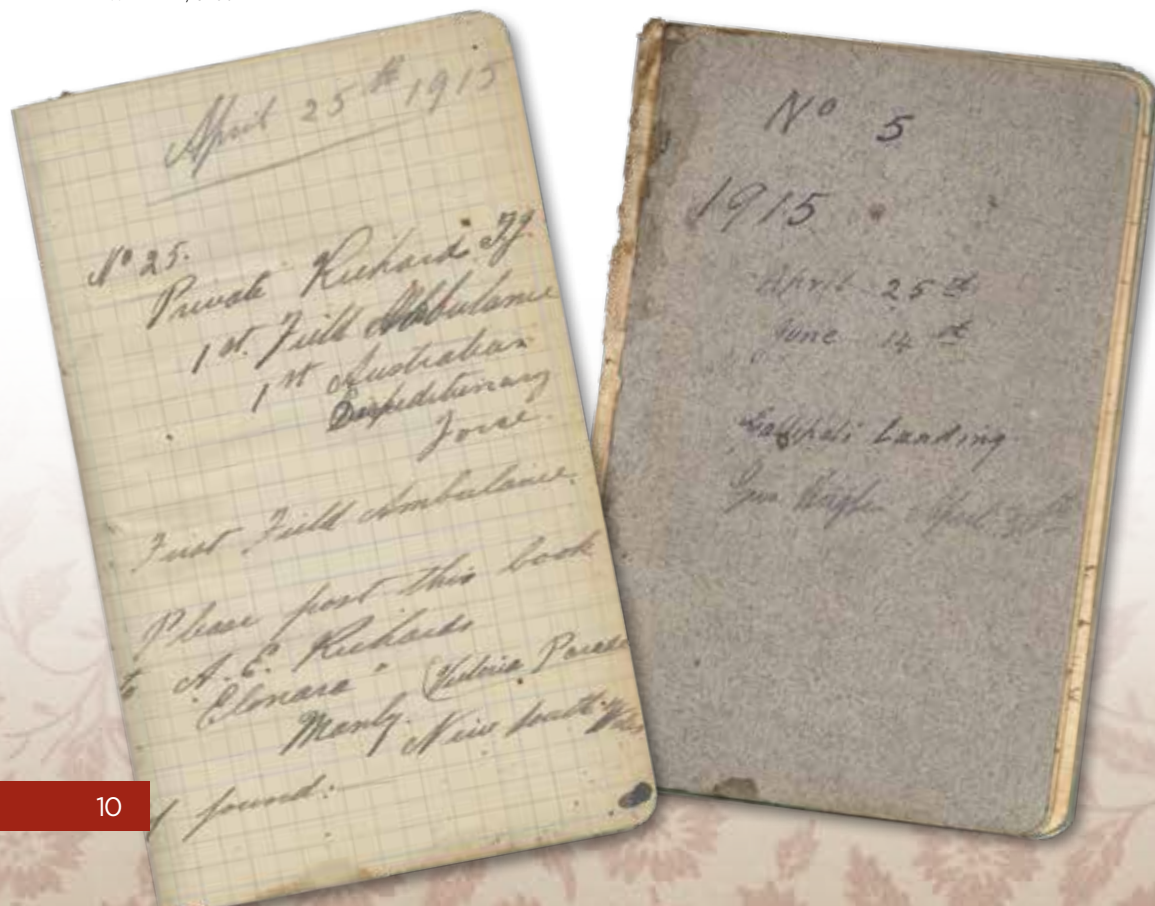 April 25th 1915
No 25.
Private Richards TJ.
1st. Field Ambulance
1st Australian
Expeditionary
Force.
First Field Ambulance.
Please post this book
to A. E. Richards
"Elonara"
Manly. (Victoria Parade
New South Wales
if found:
No 5
1915
April 25th
June 14th
Gallipoli Landing
April
10